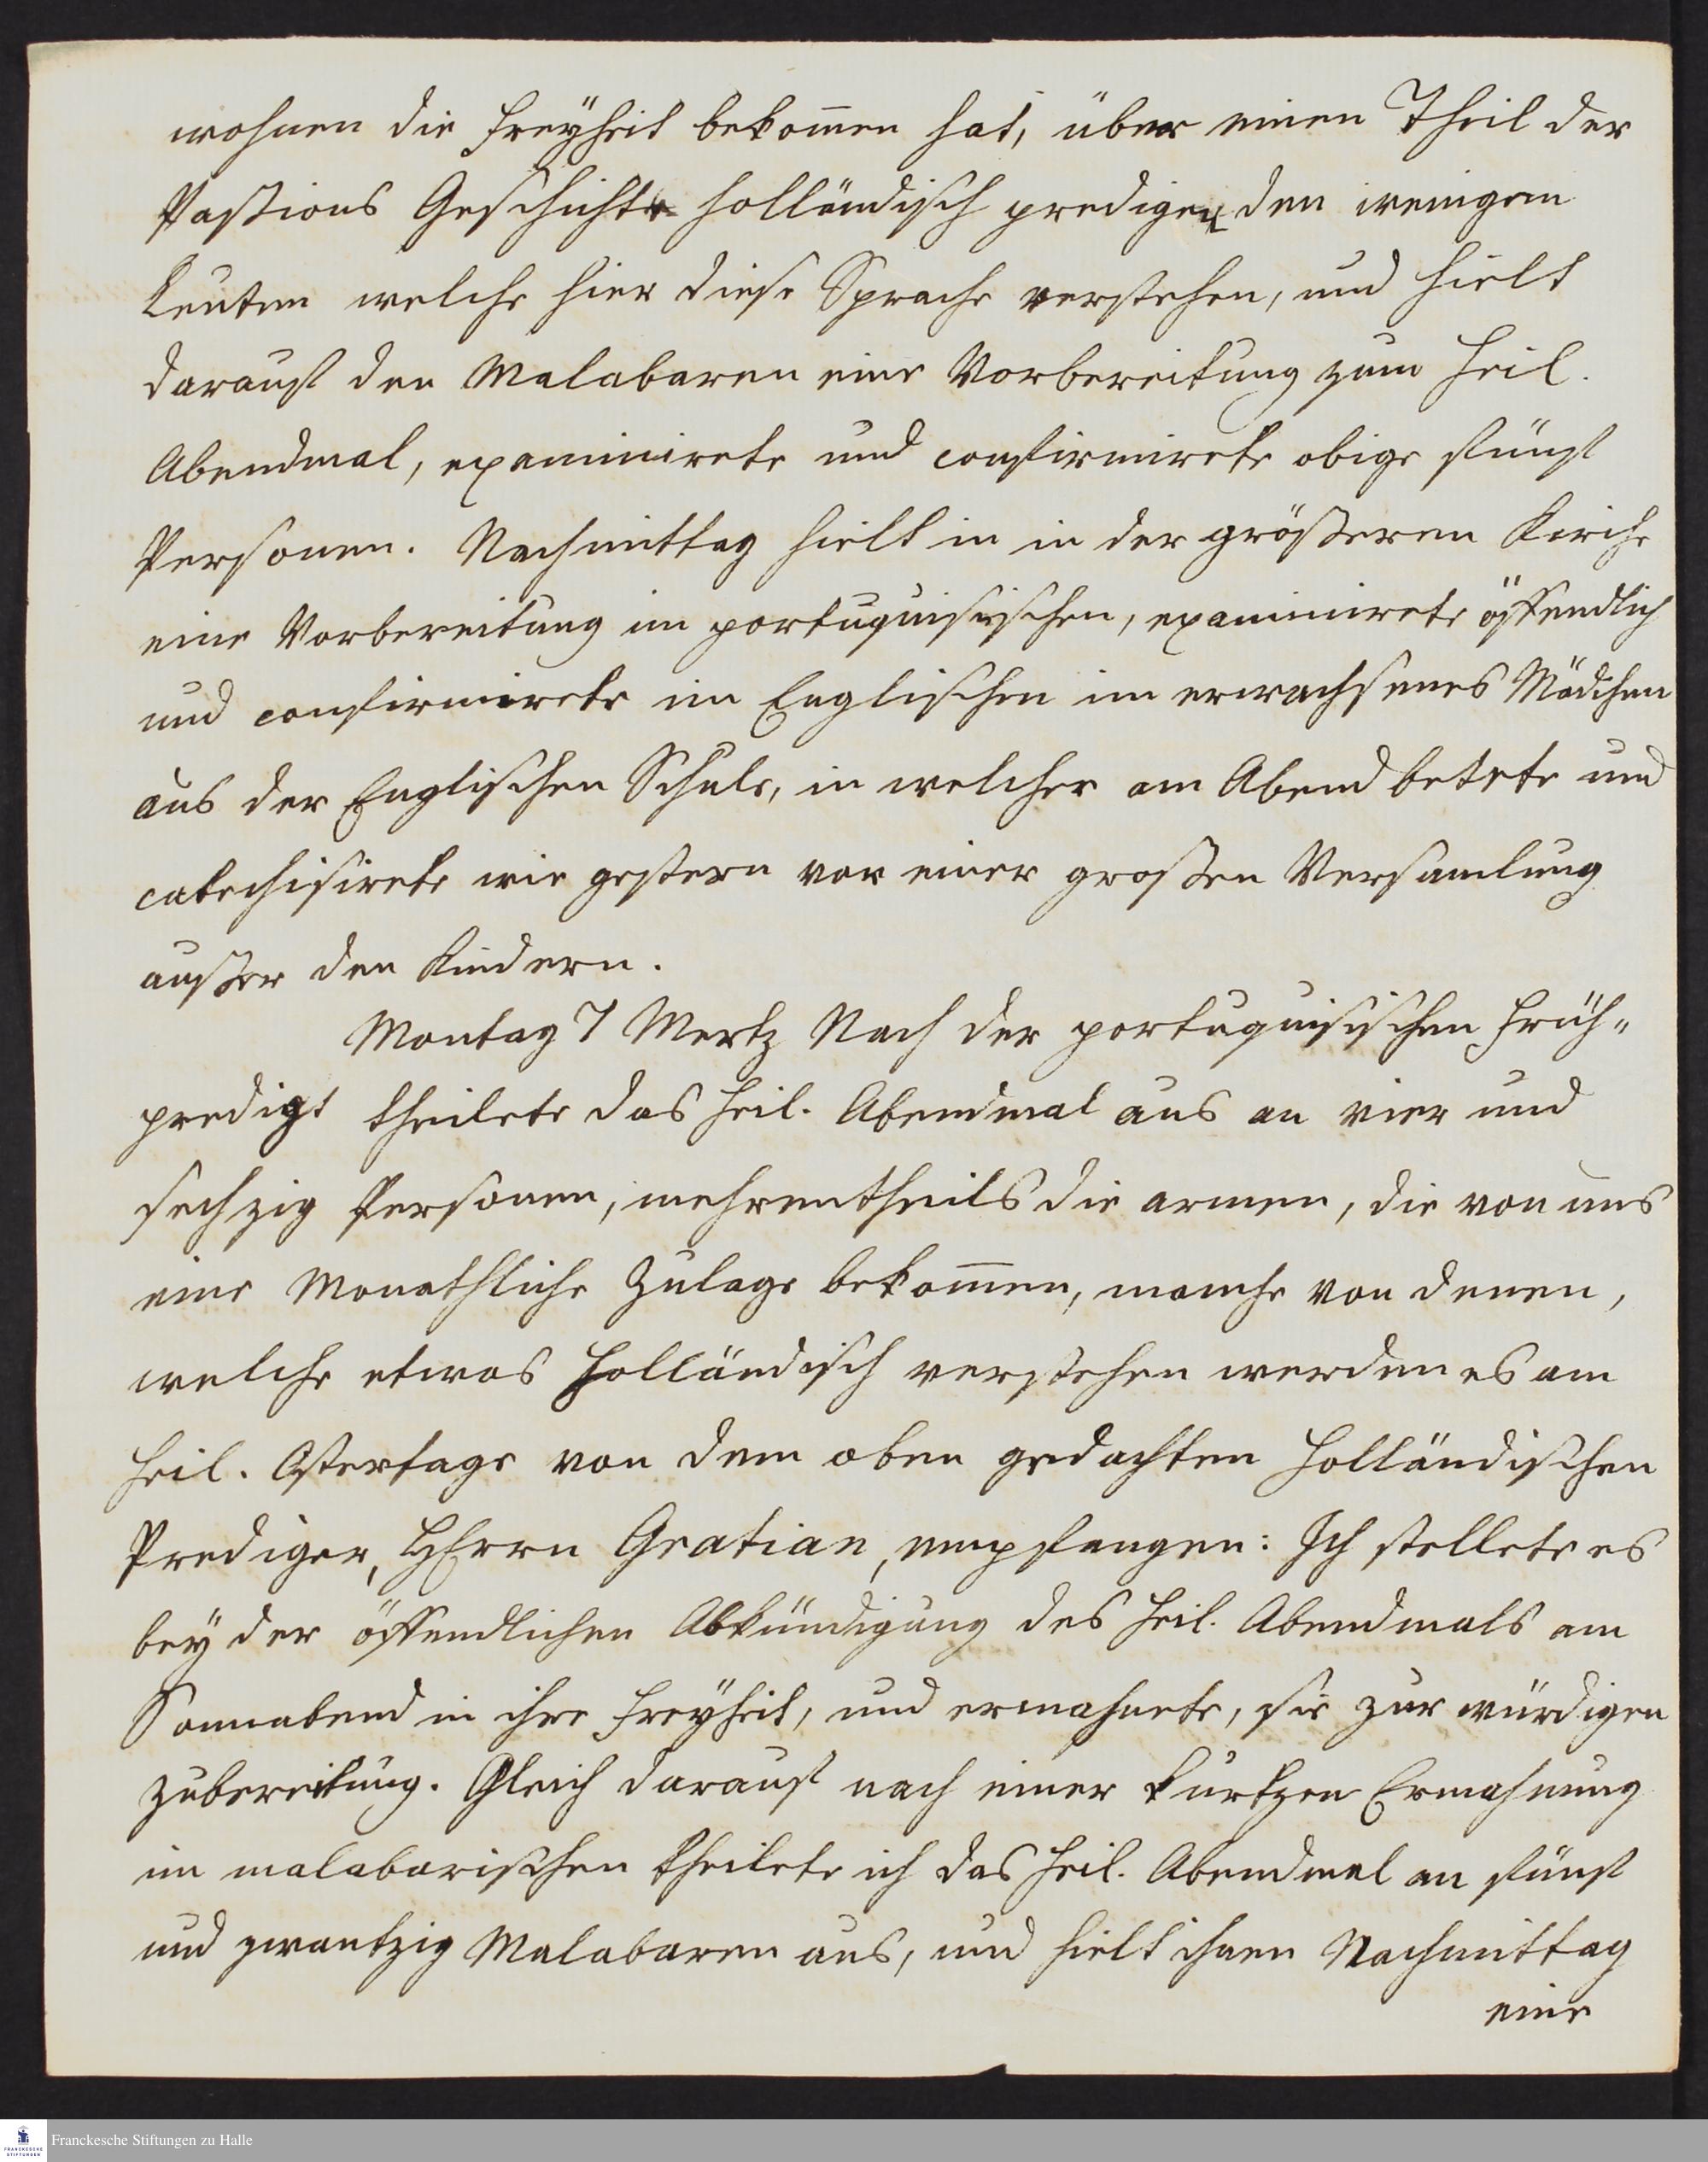 wohnen die Freÿheit bekom̅en hat, über einen Theil der
Passions Geschichte holländisch predigen den wenigen
Leuten welche hier diese Sprache verstehen, und hielt
darauf den Malabaren eine Vorbereitung zum heil.
Abendmal, examinirete und confirmirete obige fünf
Personen. Nachmittag hielt in in der größeren Kirche
eine Vorbereitung im portuguisischen, examinirete öffendlich
und confirmirete im Englischen im erwachsenes Mädchen
aus der Englischen Schule, in welcher am Abend betete und
catechisirete wie gestern vor einer großen Versamlung
außer den Kindern.
Montag 7 Mertz Nach der portuguisischen Früh„
predigt theilete das heil. Abendmal aus an vier und
sechzig Personen, mehrentheils die armen, die von uns
eine Monathliche Zulage bekom̅en, manche von denen,
welche etwas Holländisch verstehen werden es am
heil. Ostertage von dem oben gedachten Holländischen
Prediger, HErrn Gratian, empfangen: Ich stellete es
beÿ der öffendlichen Abkündigung des heil. Abendmals am
Sonnabend in ihre Freÿheit, und ermahnete, sie zur würdigen
Zubereitung. Gleich darauf nach einer kurtzen Ermahnung
im malabarischen theilete ich das heil. Abendmal an fünf
und zwantzig Malabaren aus, und hielt ihnen Nachmittag
eine
Franckesche Stiftungen zu Halle
FRANCKESCHE
STIFTUNGEN